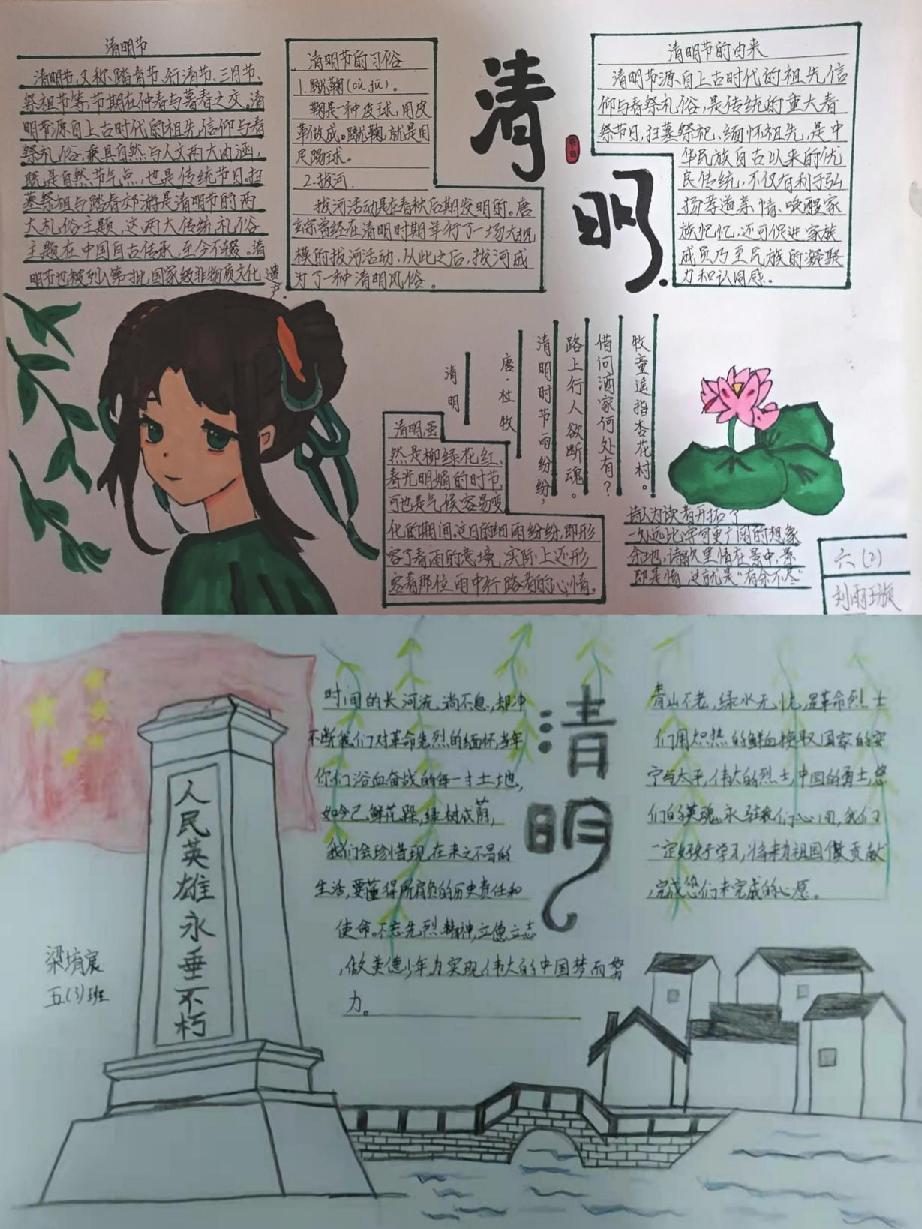 清明节
清明节,又称踏青节、行清节、三月节、
祭祖节等,节期在仲春与暮春之交。清
明节源自上古时代的祖先信仰与春
祭礼俗,兼具自然与人文两大内涵,
既是自然节气点,也是传统节日,扫
墓祭祖与踏春郊游是清明节的两
大礼俗主题,这两大传统礼俗
主题在中国自古传承,至今不辍。清
明节也被列入第一批国家级非物质文化遗产。
清明节的习俗
1.蹴鞠(cù jū)。
鞠是一种皮球,用皮
革做成。蹴鞠,就是用
足踢球。
2.拔河
拔河活动是在春秋后期发明的。唐
玄宗曾经在清明时期举行了一场大规
模的拔河活动,从此之后,拔河成
为了一种清明风俗。
清明
清明节的由来
清明节源自上古时代的祖先信
仰与春祭礼俗,是传统的重大春
祭节日,扫墓祭祀、缅怀祖先,是中
华民族自古以来的优
良传统,不仅有利于弘
扬孝道亲情、唤醒家
族记忆,还可促进家族
成员乃至民族的凝聚
力和认同感。
清明
唐·杜牧
清明时节雨纷纷,
路上行人欲断魂。
借问酒家何处有?
牧童遥指杏花村。
清明虽
然是柳绿花红、
春光明媚的时节,
可也是气候容易变
化的期间,这日的细雨纷纷,即形
容了春雨的意境,实际上还形
容着那位雨中行路者的心情。
诗人为读者开拓了
一处远比诗句更广阔的想象
余地,诗歌里情在景中,景
即是情,这就是“有余不尽”
六(2)
刘雨璇
人民英雄永垂不朽
梁埼宸
五(3)班
时间的长河流淌不息,却冲
不断我们对革命先烈的缅怀,当年
你们浴血奋战的每一寸土地,
如今已鲜花踩,绿树成荫,
我们会珍惜现在来之不易的
生活,要懂得所肩负的历史责任和
使命。不忘先烈精神,立德立志
,做美德少年,为实现伟大的中国梦而努
力。
清明
青山不老,绿水无忧,是革命烈士
们用炽热的鲜血换取国家的安
宁与太平,伟大的烈士,中国的勇士,您
们的英魂永驻我们心间,我们
一定好好学习,将来为祖国做贡献
,完成您们未完成的心愿。